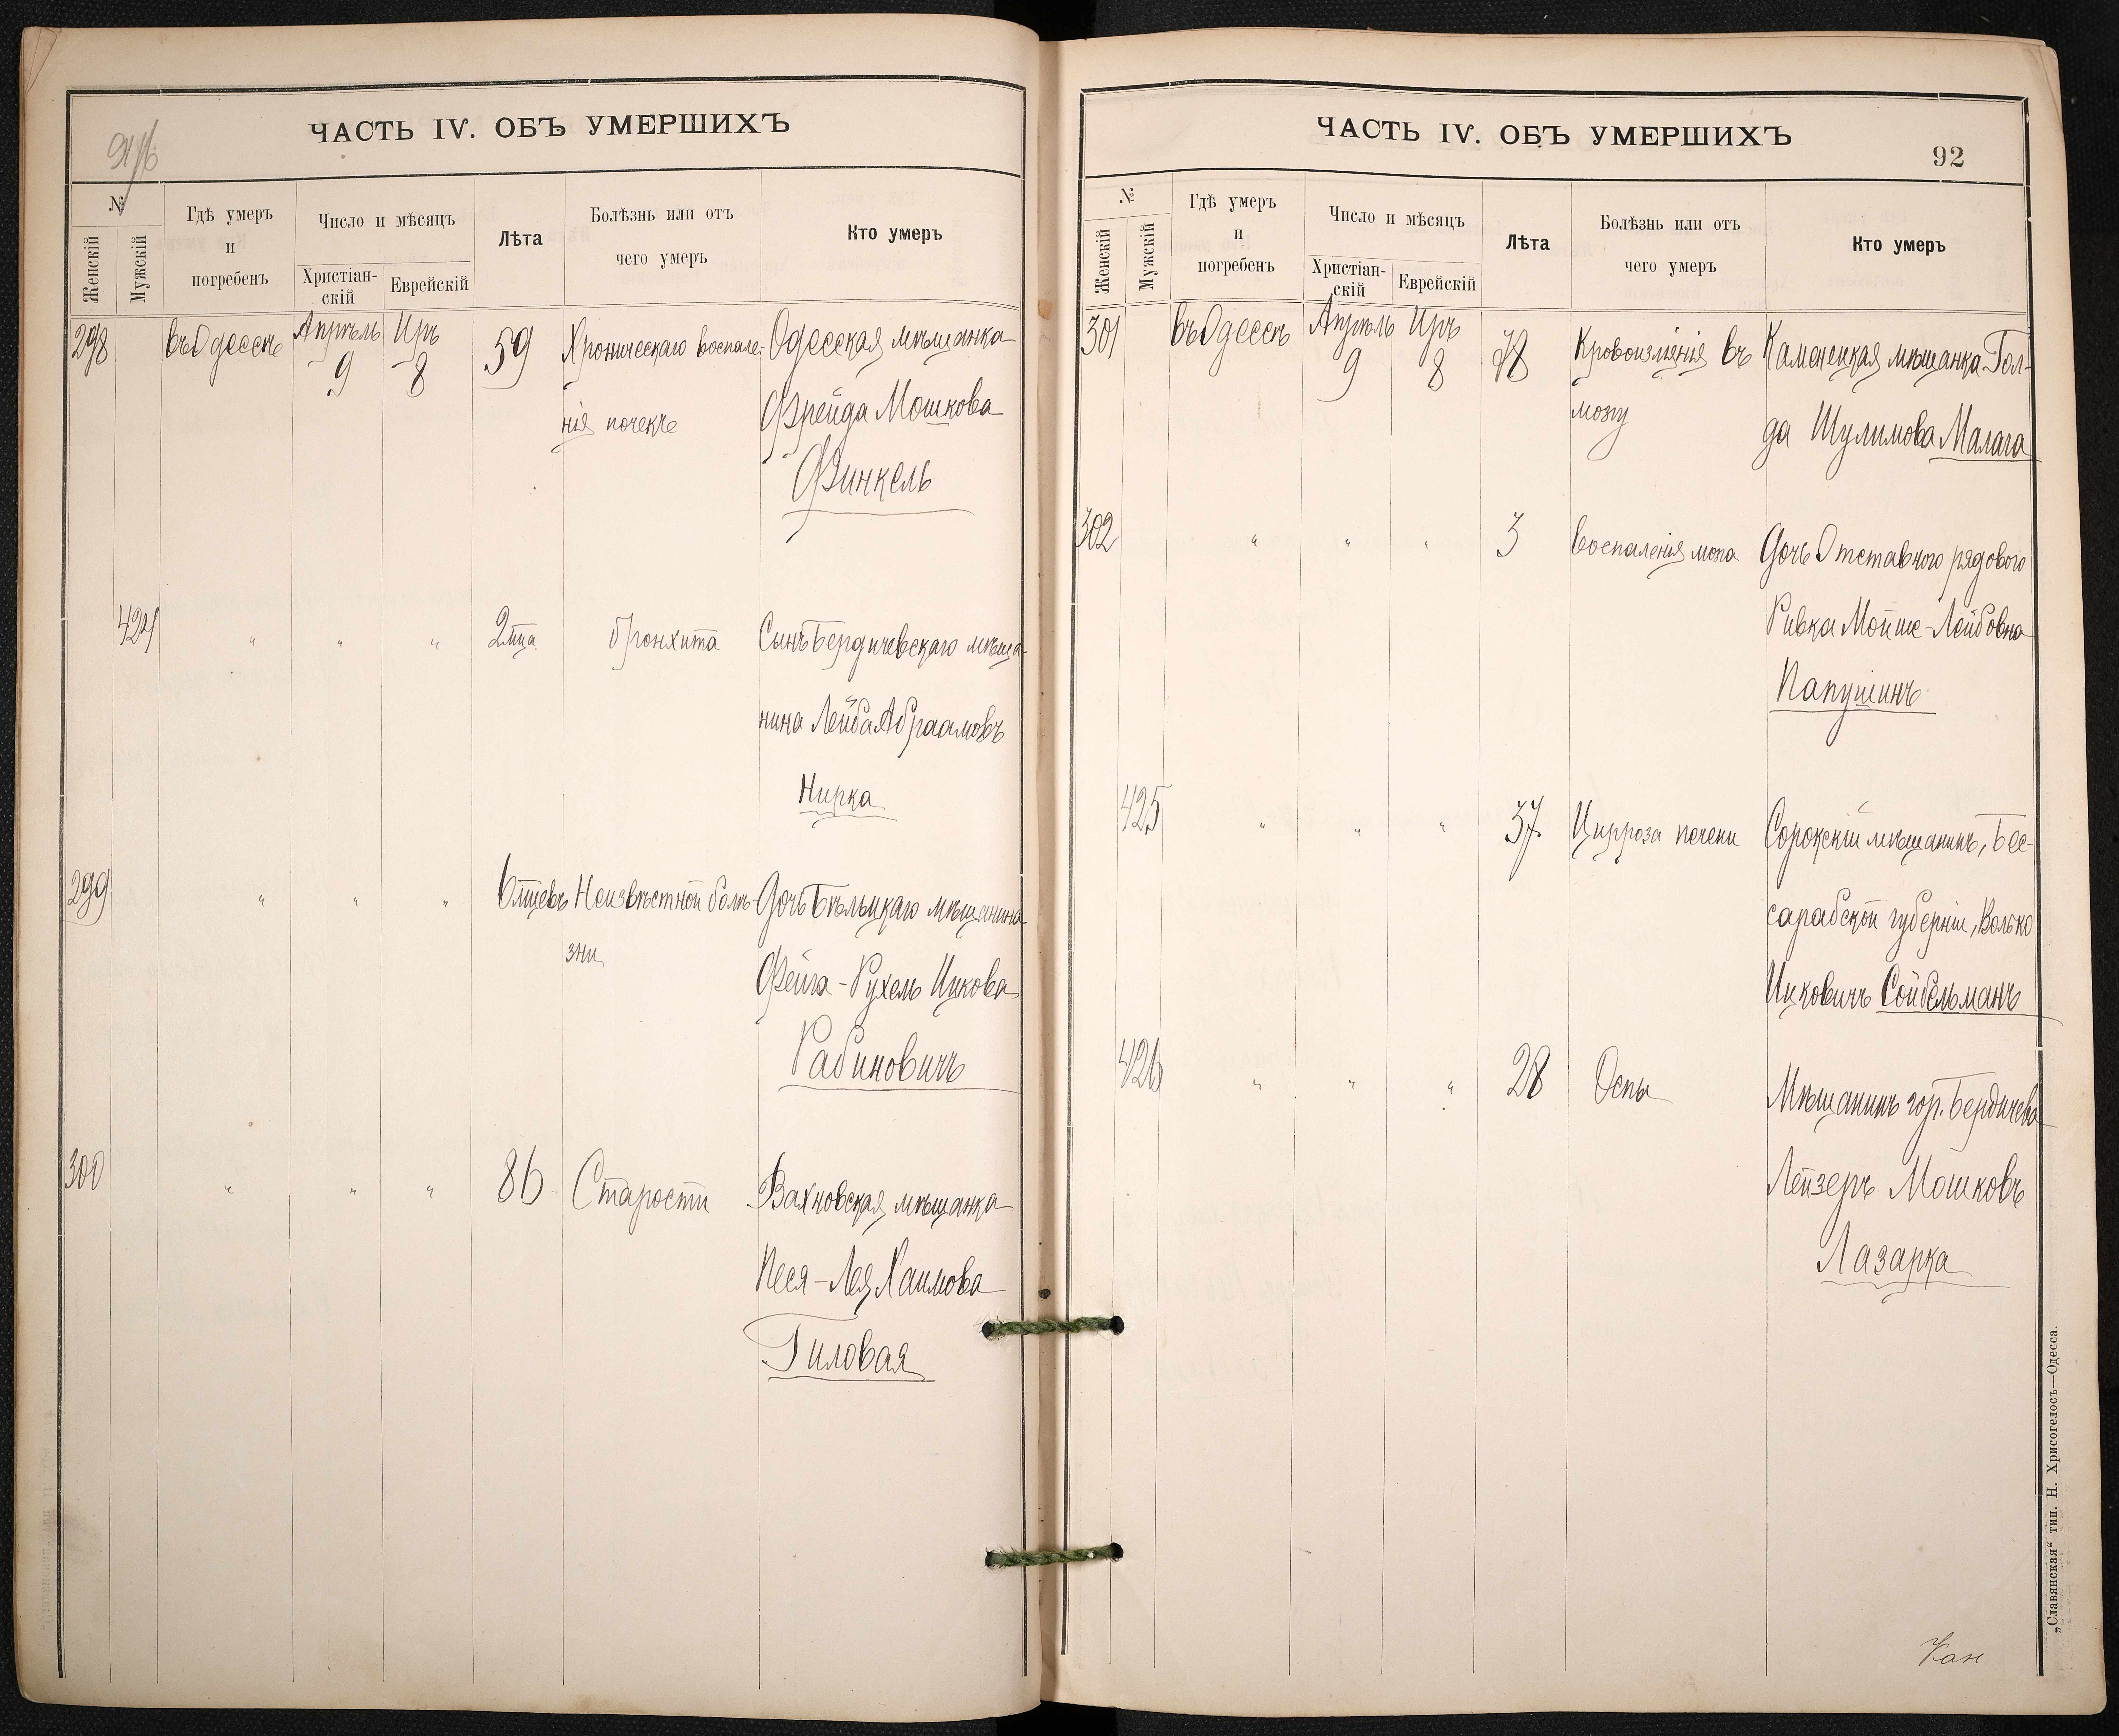 ЧАСТЬ IV. ОБЪ УМЕРШИХЪ
№
Женскій
Мужскій
Гдѣ умеръ
и
погребенъ
Число и мѣсяцъ
Христіан-
скій
Еврейскій
Лѣта
Болѣзнь или отъ
чего умеръ
Кто умеръ
298 въ Одессѣ Апрѣль Иръ 59 Хроническаго воспале- Одесская мѣщанка
9 8
нія почекъ Фрейда Мошкова
Финкель
424 " " " 2 мца бронхита Сынъ Бердичевскаго мѣща-
нина Лейба Абраамовъ
Нирка
299 " " " 6 мцевъ Неизвѣстной болѣ- Дочь Бѣльцкаго мѣщанина
зни Фейга-Рухель Ицкова
Рабиновичъ
300 " " " 86 Старости Вахновская мѣщанка
Песя-Лея Хаимова
Гиловая
ЧАСТЬ IV. ОБЪ УМЕРШИХЪ
92
№
Женскій
Мужскій
Гдѣ умеръ
и
погребенъ
Число и мѣсяцъ
Христіан-
скій
Еврейскій
Лѣта
Болѣзнь или отъ
чего умеръ
Кто умеръ
301 въ Одессѣ Апрѣль Иръ 78 Кровоизліянія въ Каменецкая мѣщанка Гол-
9 8
мозгу да Шулимова Малага
302 " " " 3 воспаленія мозга Дочь Отставного рядового
Ривка Мойше-Лейбовна
Папушинъ
425 " " " 37 Цирроза печени Сорокскій мѣщанинъ, Бес-
сарабской губерніи, Волько
Ицковичъ Сойбельманъ
426 " " " 28 Оспы Мѣщанинъ гор. Бердичева
Лейзеръ Мошковъ
Лазарка
„Славянская“ тип. Н. Хрисогелосъ—Одесса.